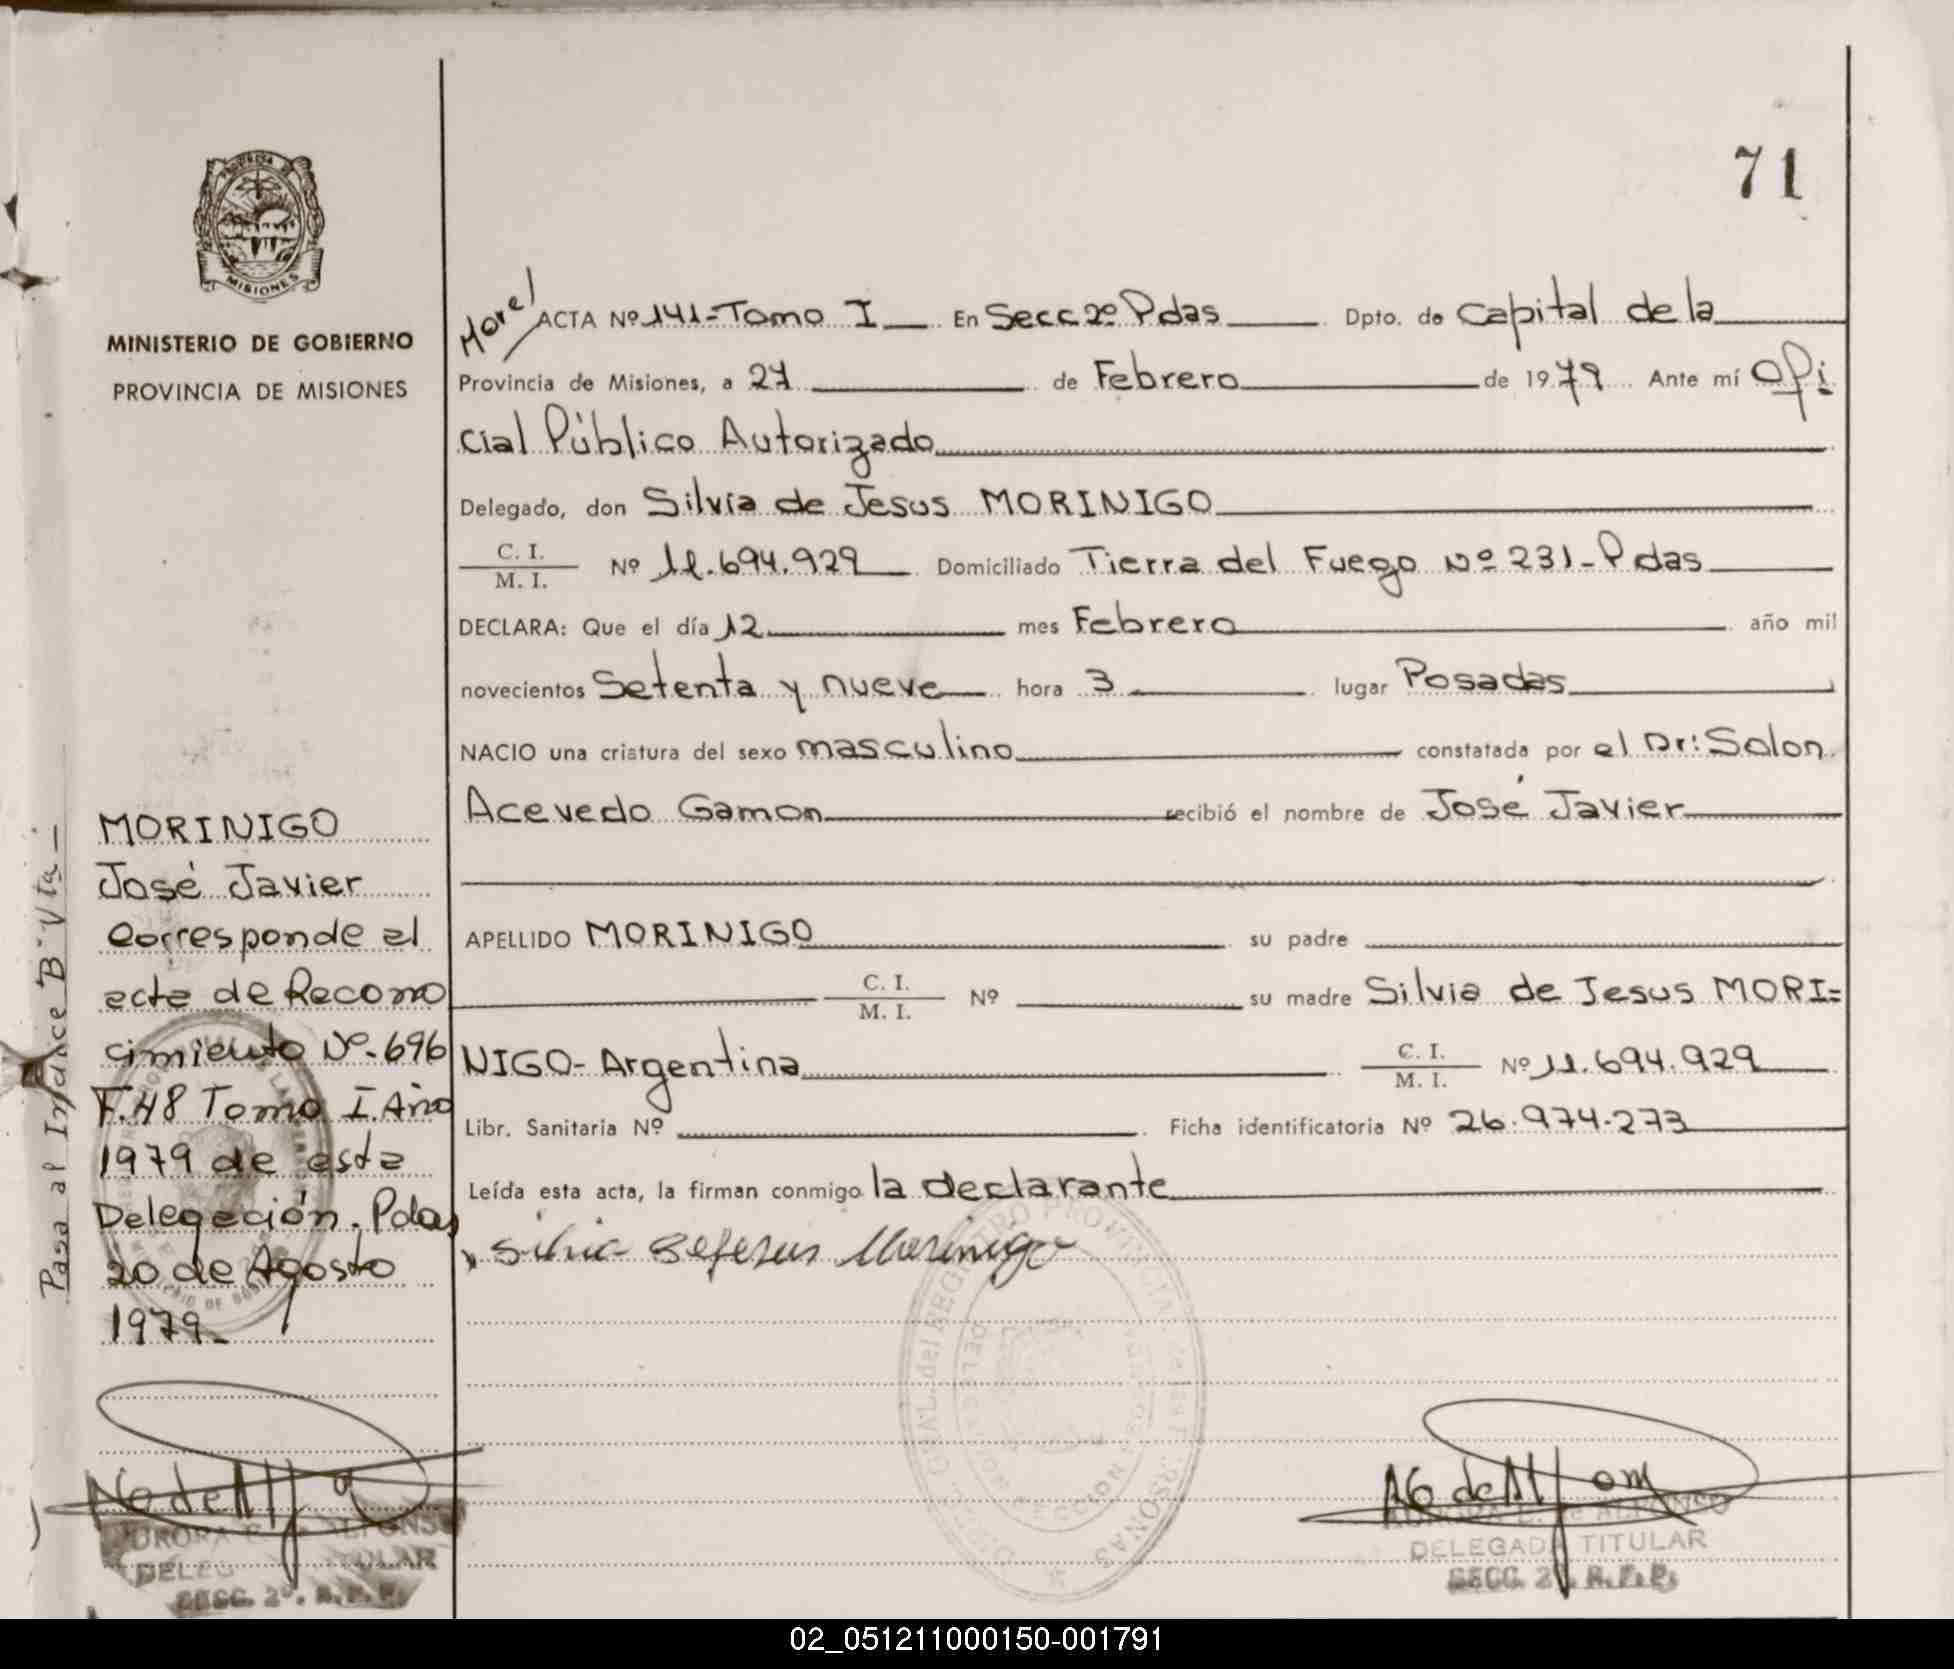 71
PROVINCIA DE
MISIONES
MINISTERIO DE GOBIERNO
PROVINCIA DE MISIONES
Morel
ACTA Nº 141-Tomo I En Secc 2º Pdas Dpto. de Capital de la
Provincia de Misiones, a 27 de Febrero de 1979 Ante mí Ofi
cial Público Autorizado
Delegado, don Silvia de Jesus MORINIGO
C. I.
M. I. Nº 11.694.929 Domiciliado Tierra del Fuego Nº 231-Pdas
DECLARA: Que el día 12 mes Febrero año mil
novecientos Setenta y nueve hora 3 lugar Posadas
NACIO una criatura del sexo masculino constatada por el Dr: Solon
Acevedo Gamon recibió el nombre de José Javier
APELLIDO MORINIGO su padre
C. I.
M. I. Nº su madre Silvia de Jesus MORI=
NIGO-Argentina C. I.
M. I. Nº 11.694.929
Libr. Sanitaria Nº Ficha identificatoria Nº 26.974.273
Leída esta acta, la firman conmigo la declarante
Silvia de Jesus Morinigo
MORINIGO
José Javier
Corresponde al
acta de Recono
cimiento Nº.696
F.48 Tomo I. Año
1979 de esta
Delegación. Pdas
20 de Agosto
1979-
Pasa al Indice B Vta-
AURORA E. de ALFONSO
DELEGADA TITULAR
SECC. 2º. R.P.P.
AURORA E. de ALFONSO
DELEGADA TITULAR
SECC. 2º. R.P.P.
02_051211000150-001791